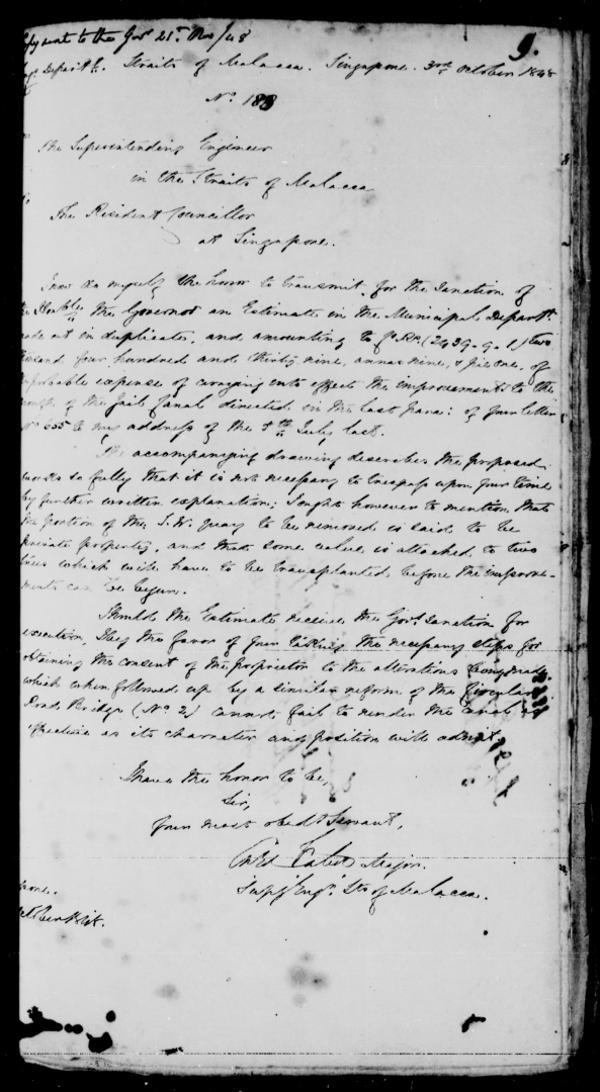 Copy sent to the Govr 21st Nov/48
9.
Engr Departt. Straits of Malacca. Singapore. 3rd October 1848
No. 188
The Superintending Engineer
in the Straits of Malacca
The Resident Councillor
at Singapore.
I now do myself the honor to transmit, for the Sanction of
the Honble the Governor an Estimate in the Municipal Departt.
made out in duplicate, and amounting to Co. Rs (2439.9.1) two
thousand four hundred and thirty nine, annas nine, & pie one, of
probable expense of carrying into effect the improvement to the
of the Jail Canal directed in the last para: of your letter
No 655 to my address of the 5th July last.
The accompanying drawing describes the proposed
works so fully that it is not necessary to trespass upon your time
by further written explanation; I ought however to mention that
the portion of the S.W. quay to be removed is said to be
private property, and that some value is attached to two
trees which will have to be transplanted before the improve-
ments can be begun.
Should the Estimate receive the Govt. Sanction for
execution, I beg the favor of your taking the necessary steps for
obtaining the consent of the proprietor to the alterations being made
which when followed up by a similar reform of the Circular
Road Bridge (No 2) cannot fail to render the Canal as
effective as its character and position will admit.
I have the honor to be,
Sir,
Your most obedt Servant,
Major.
Supg Engr. Sts of Malacca.